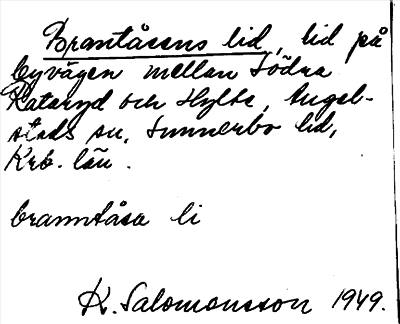 Brantåsens lid, lid på
byvägen mellan Södra
Rataryd och Hylte, Angel-
stads sn, Sunnerbo hd,
Krb. län.
branntåsa li
K. Salomonsson 1949.